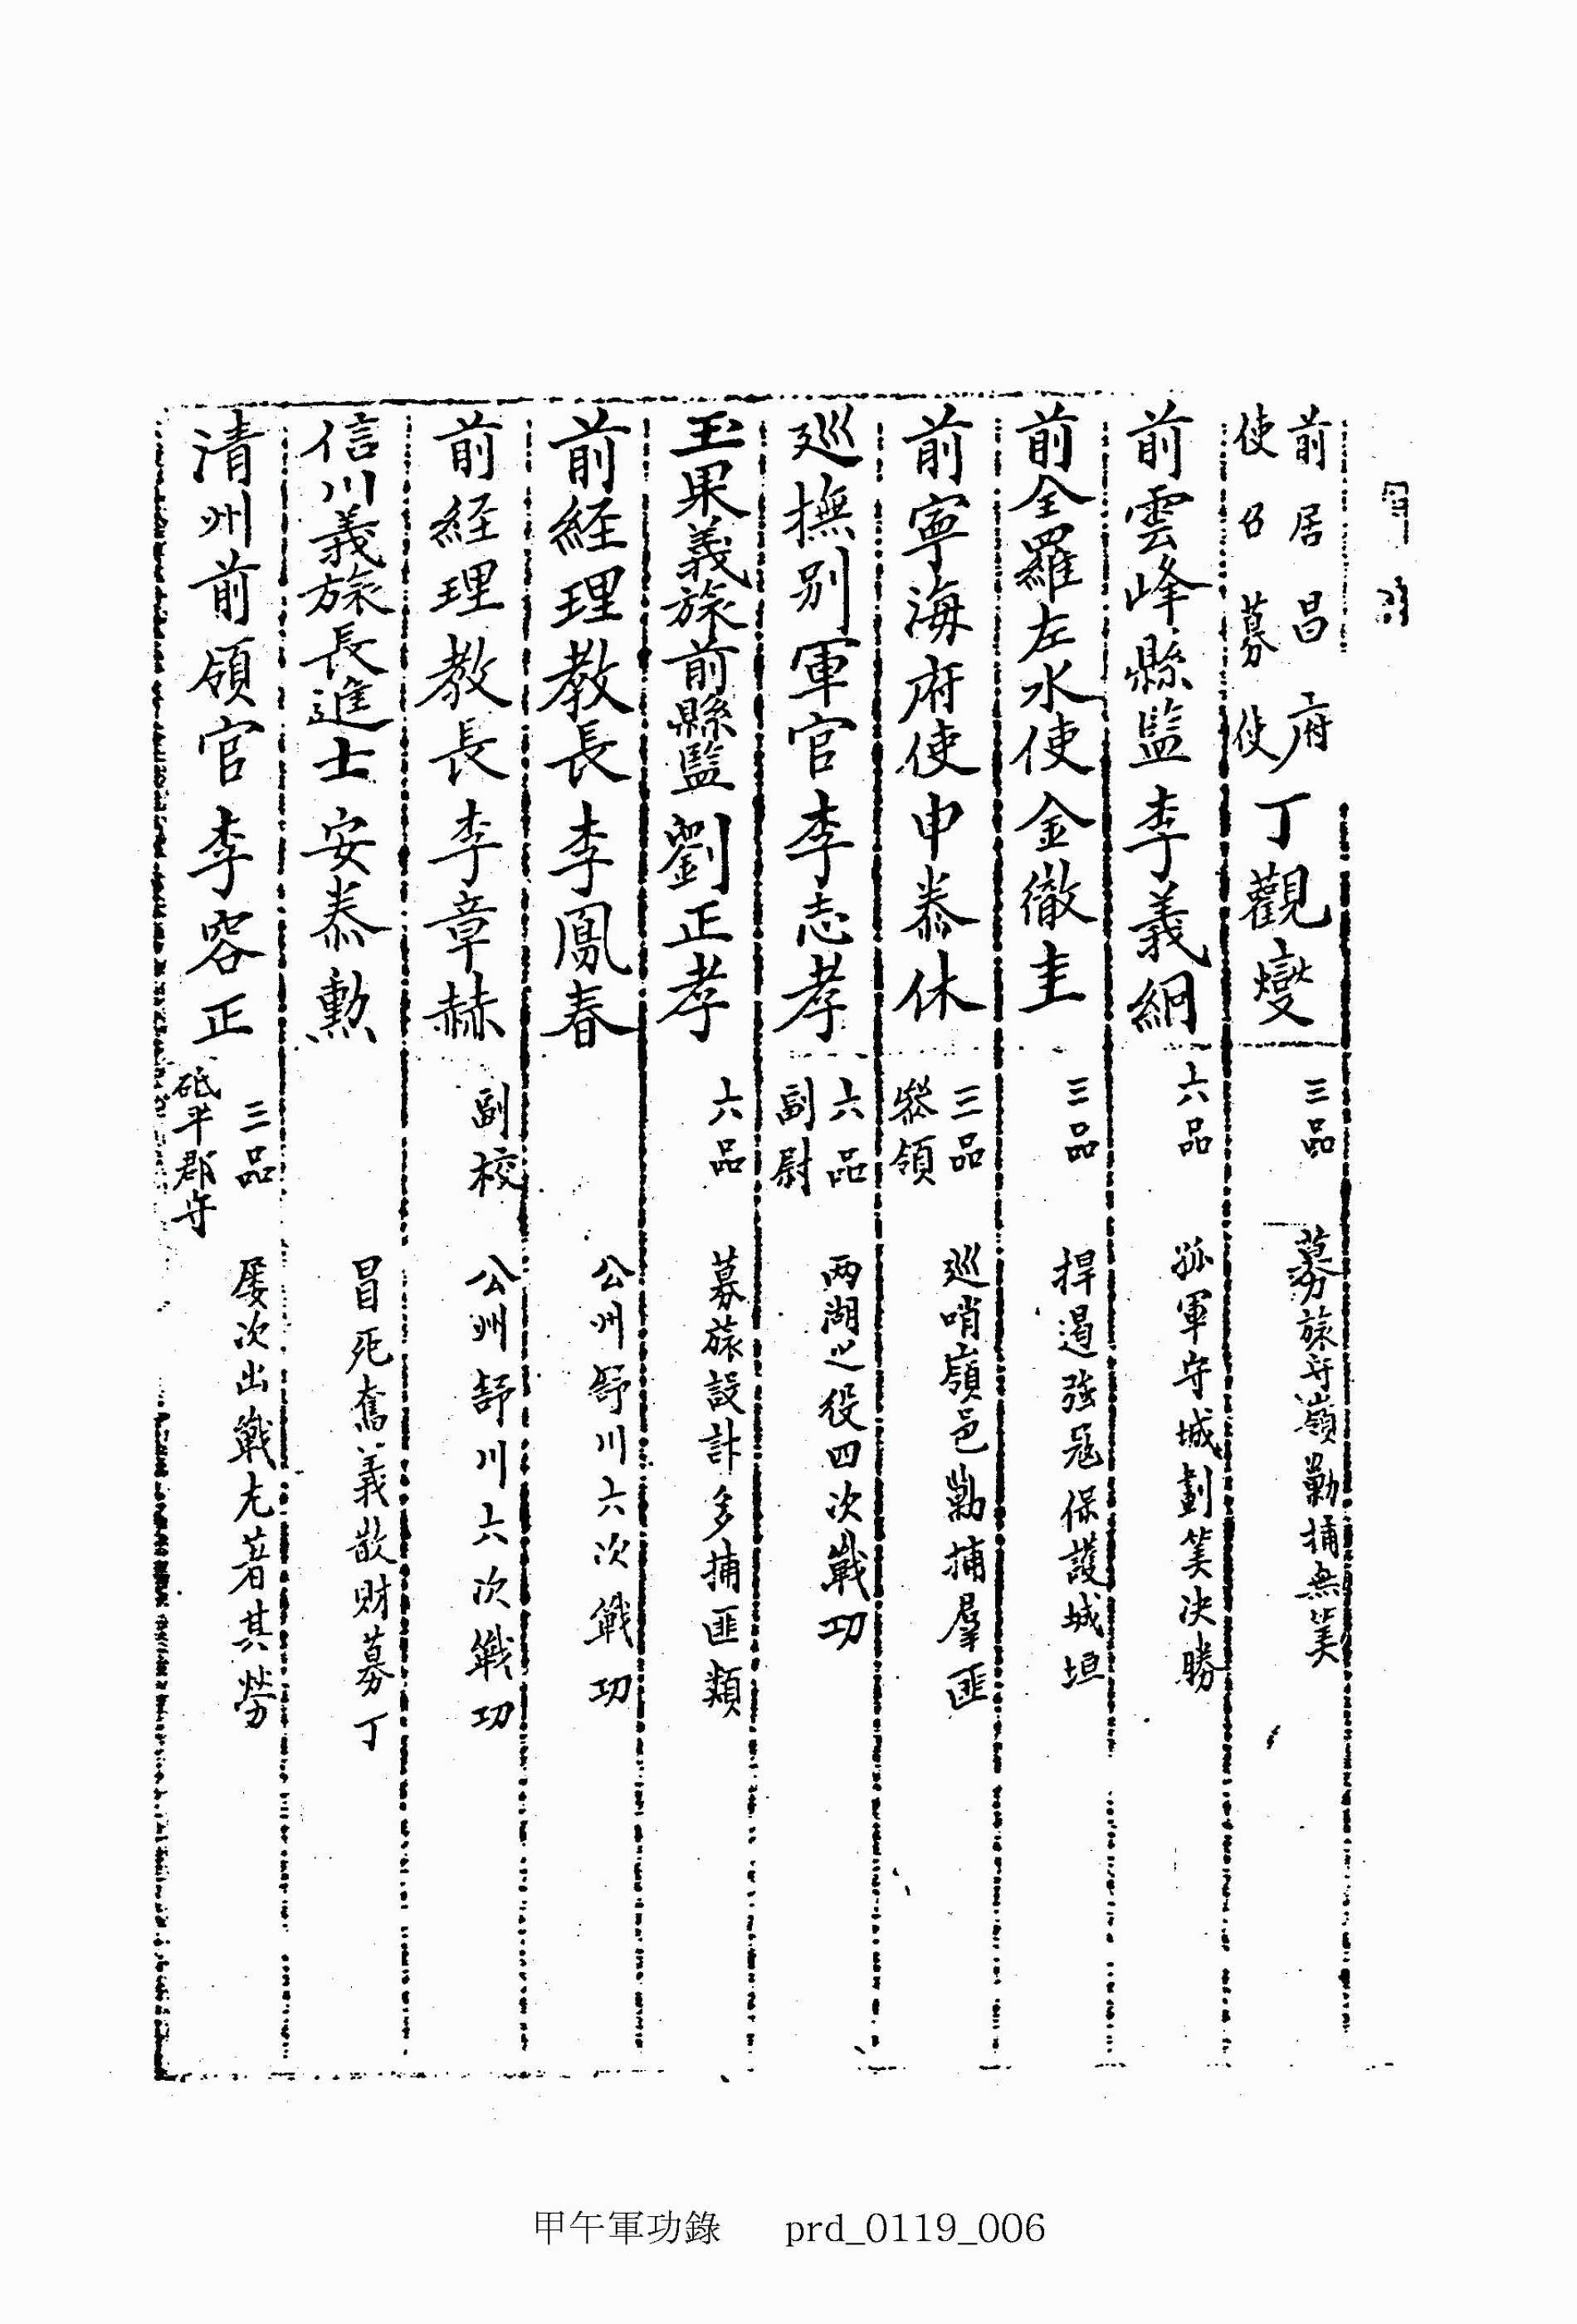 前居昌府使召募使 丁觀燮 三品 募旅守嶺勦捕無筭
前雲峰縣監 李義絅 六品 孤軍守城劃筭决勝
前全羅左水使 金徹圭 三品 捍遏強寇保護城垣
前寧海府使 申泰休 三品 叅領 巡哨嶺邑勦捕羣匪
巡撫別軍官 李志孝 六品 副尉 两湖之役四次戰功
玉果義旅前縣監 劉正孝 六品 募旅設計多捕匪類
前経理教長 李鳳春 公州舒川六次戰功
前経理教長 李章赫 副校 公州舒川六次戰功
信川義旅長進士 安泰勳 冒死奮義散財募丁
清州前領官 李容正 三品 砥平郡守 屡次出戰尤著其勞
甲午軍功錄 prd_0119_006